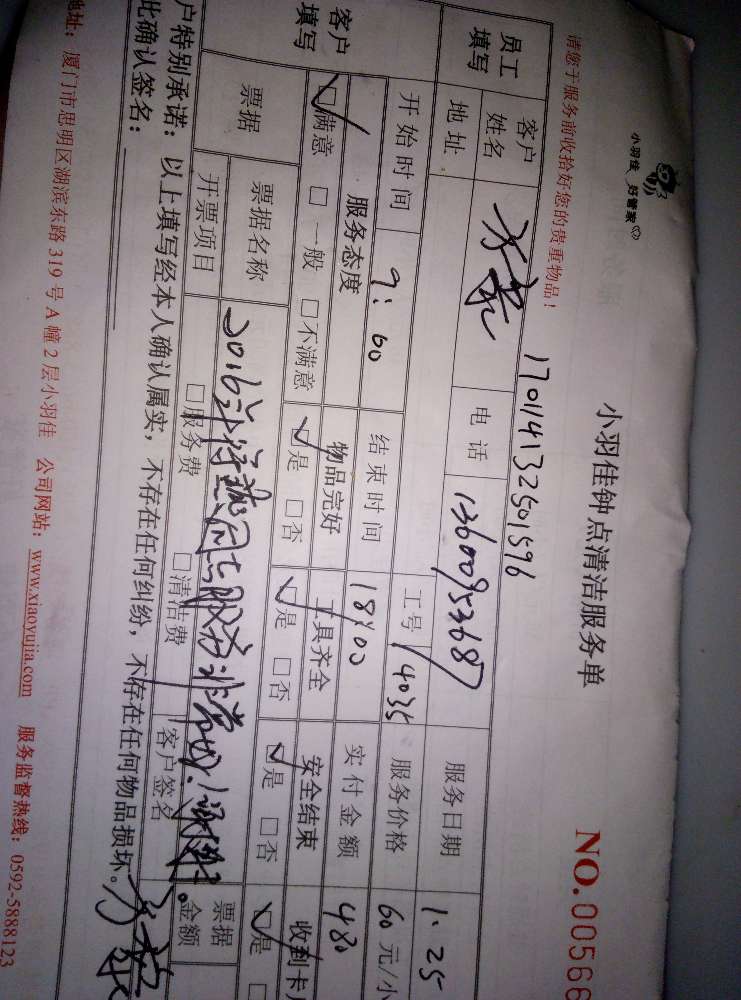 小羽佳 好管家
小羽佳钟点清洁服务单
NO.00566
请您于服务前收拾好您的贵重物品!
1701141132501596
员工填写
客户姓名
电话 13600953687
服务日期 1.25
地址
工号 14035
服务价格 60元/小
客户填写
开始时间 9:00
结束时间 18:00
实付金额 480
服务态度 物品完好 工具齐全 安全结束 收到卡
☑满意 □一般 □不满意 ☑是 □否 ☑是 □否 ☑是 □否 ☑是 □
票据 票据名称
票据金额
开票项目 □服务费 □清洁费 客户签名
户特别承诺:以上填写经本人确认属实,不存在任何纠纷,不存在任何物品损坏。
比确认签名:
地址:厦门市思明区湖滨东路319号A幢2层小羽佳 公司网站:www.xiaoyujia.com 服务监督热线:0592-5888123